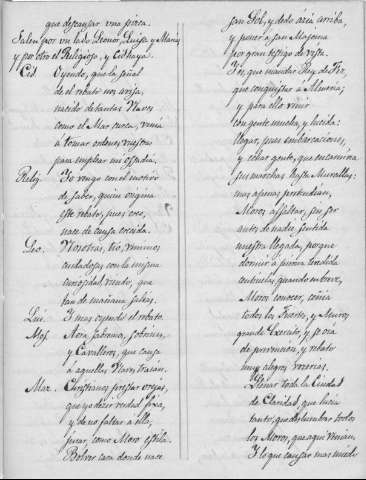 que descansar una pieza.
Salen por un lado Leonor, Luisa y Maria,
y por otro el Religioso, y Cidhaya.
Cid. Oyendo, que la señal
de el rebato nos avisa,
nacido de tantas Naves
como el Mar surca, venia
á tomar ordenes vuestras
para emplear mi osadia.
Relig. Yo vengo con el motivo
de saber, quien origina
este rebato, pues creo,
nace de causa crecida.
Leo. Nosotras, tio, venimos
cuidadosas con la misma
curiosidad, viendo, que
tan de mañana salias.
Lui. Y mas oyendo el rebato.
Aora sabreis, sobrinas,
y Cavalleros, que causa
á aquellas Naves traian.
Mor. Christianos prestar orejas,
que yo decir verdad fixa,
y de no faltar a ella,
jurar, como Moro
Bolver cara donde nace
san Sol, y dedo ázia arriba,
y poner a san Mahoma
por gran testigo de vista.
Rey de Fez,
que conquistar a Almeria;
y para ello venir
con gente mucha, y lucida:
llegar, pues embarcaciones,
y echar gente, que encamina
sus marchas hasta Murallas;
mas apenas pretendian,
Moros assaltar, pu ser
antes de nadie sentida
nuestra llegada, porque
dormir á pierna tendida
centinelas, quando en breve,
Moros conocer, coma
todos los Fuertes, y Muros
grande Exercito, y se oia
de prevencion, y rebato
muy alegres vocerias.
Llenar toda la Ciudad
de Claridad, que lucia
tanto, que deslumbrar todos
los Moros, que aqui venian.
Y lo que causar mas miedo